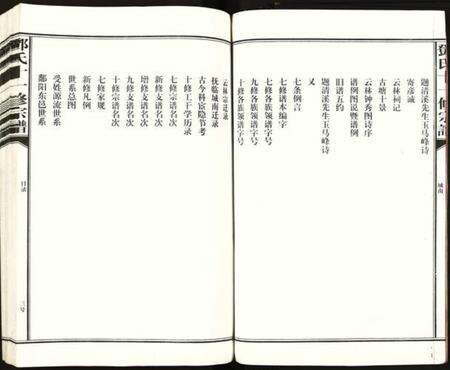 题清溪先生玉马峰诗
寄彦诚
云林祠记
古塘十景
云林钟秀图诗序
谱例图说暨谱例
旧谱五约
题清溪先生玉马峰诗
又
七条例言
七修谱本编字
七修各族领谱字号
九修各族领谱字号
十修各族领谱字号
云林宗迁录
抚临城南迁录
古今科宦隐节考
十修工干学历录
七修宗谱名次
九修支谱名次
增修支谱名次
十修宗谱名次
七修家规
新修凡例
世系总图
受姓源流世系
鄱阳东邑世系
氏十一修宗谱
目录